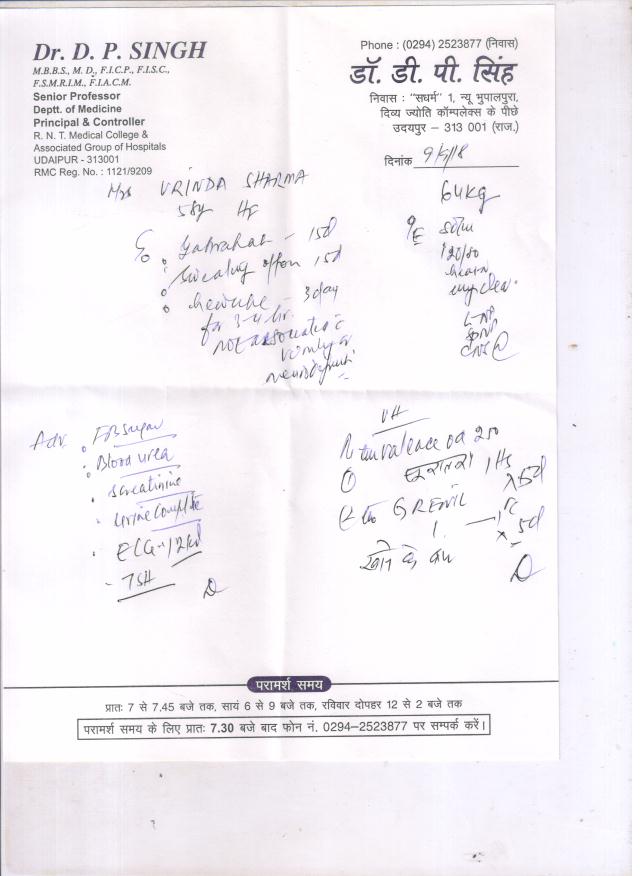 Dr. D. P. SINGH
M.B.B.S., M. D., F.I.C.P., F.I.S.C.,
F.S.M.R.I.M., F.I.A.C.M.
Senior Professor
Deptt. of Medicine
Principal & Controller
R. N. T. Medical College &
Associated Group of Hospitals
UDAIPUR - 313001
RMC Reg. No. : 1121/9209
Phone : (0294) 2523877 (निवास)
डॉ. डी. पी. सिंह
निवास : "सधर्म" 1, न्यू भुपालपुरा,
दिव्य ज्योति कॉम्पलेक्स के पीछे
उदयपुर – 313 001 (राज.)
दिनांक
Mrs VRINDA SHARMA
58y
64kg
Gabrahat - 15d
Sweating often 15d
- 3day
for 3-4 hr.
not associated c
120/80
Adv.
FBSugar
Blood urea
S creatinine
Urine Complete
ECG-12 Ld
- TSH
x 5d
x 5d
परामर्श समय
प्रातः 7 से 7.45 बजे तक, सायं 6 से 9 बजे तक, रविवार दोपहर 12 से 2 बजे तक
परामर्श समय के लिए प्रातः 7.30 बजे बाद फोन नं. 0294–2523877 पर सम्पर्क करें।